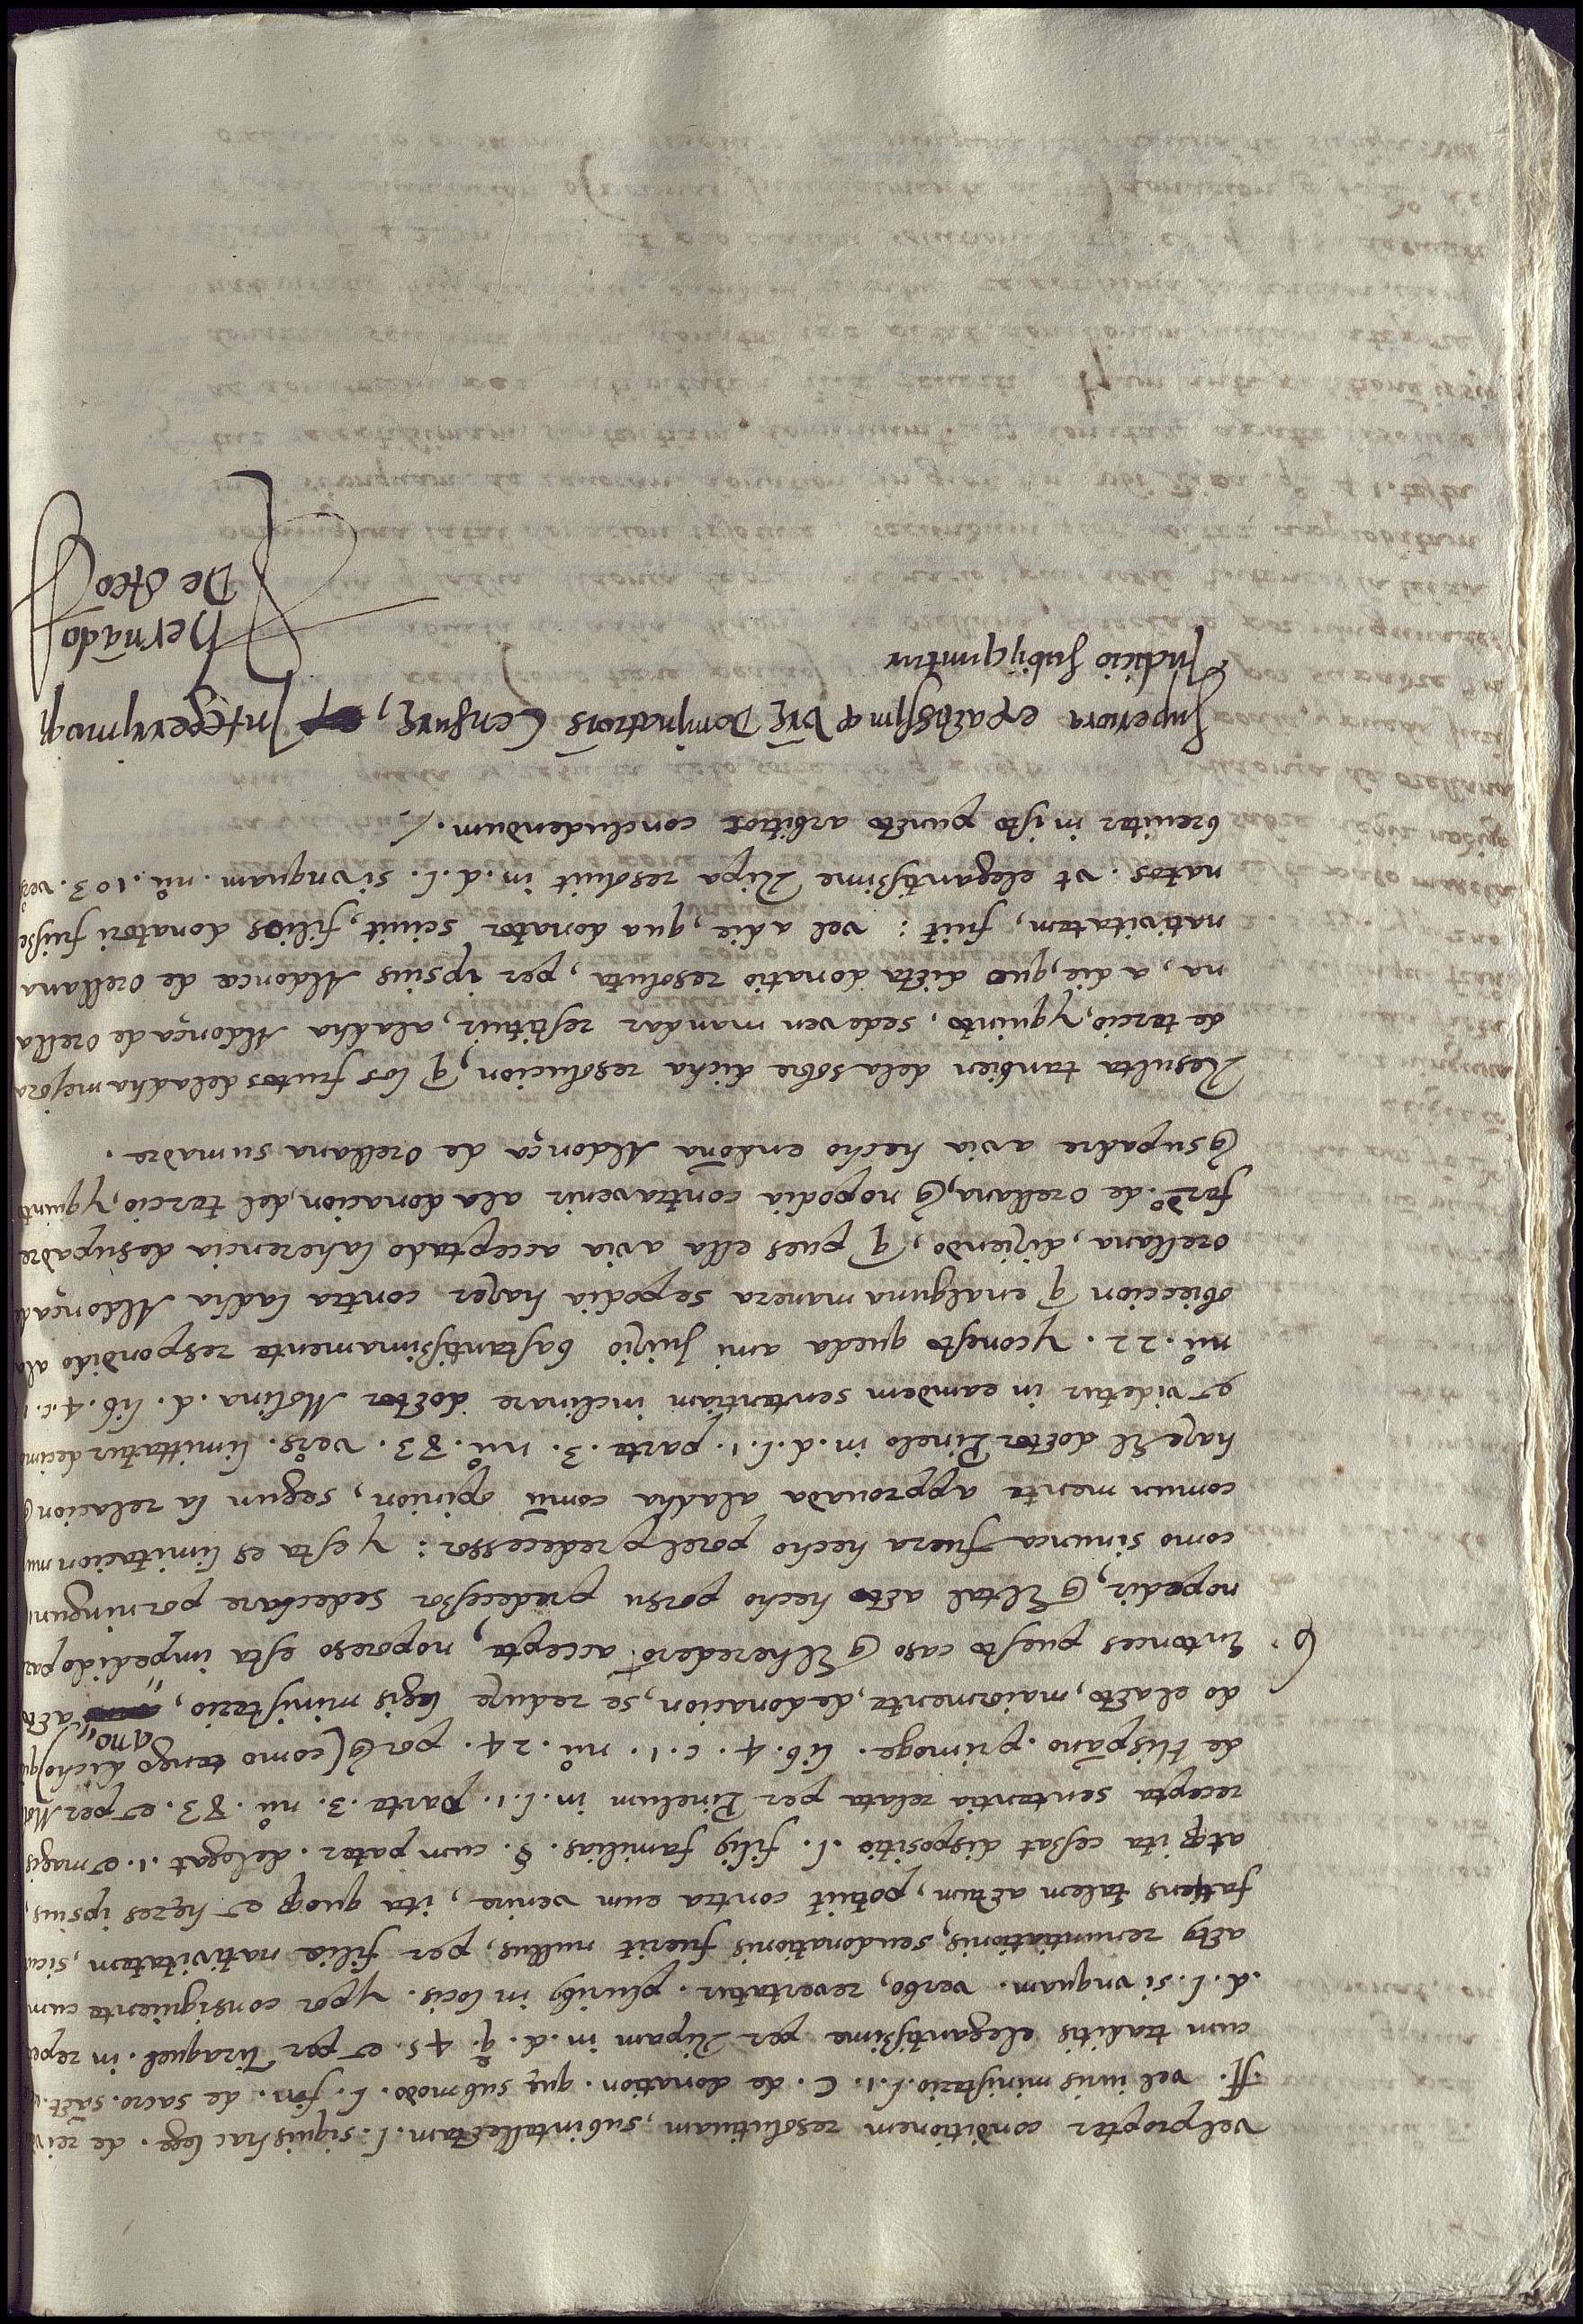 vel propter conditionem resolutivam, subintellectam. l. siquis hac lege. de rei v
ff. vel iuris ministerio. l. 1. C. de donation. quę sub modo. l. fin. de sacro. sāct.
cum traditis elegantissime per Ripam in. d. q̄. 45. et per Tiraquel. in repe
.d. l. si vnquam. verbo, revertatur. plurib9 in locis. y por consiguiente cum
act9 renuntiationis, seu donationis fuerit nullus, per filiæ nativitatem, sicu
fatiens talem actum, potuit contra eum venire, ita quoq3 et hęres ipsius,
atq3 ita cessat dispositio. l. fili9 familias. §. cum pater. delegat. 1. et magis
recepta sententia relata per Pinelum in. l. 1. parte. 3. nů. 83. et per Mo
de Hispāno. primoge. lib. 4. c. 1. nů. 24. porq̃ (como tengo dicho) qu
ano,,
do elacto, maiormente, de donacion, se reduze legis ministerio, ,, acto
6. Entonces puesto caso q̃ Elheredero accepte, noporeso esta impedido par
nopedir, q̃ Eltal acto hecho porsu predecessor sedeclare porningun
como sinunca fuera hecho porel predecessor: y esta es limitacion mu
comun mente approuada aladha comũ opinion, segun la relacion q̃
haze El doctor Pinelo in. d. l. 1. parte. 3. nů. 83. vers̊. limittatur decimo
et videtur in eamdem sententiam inclinare doctor Molina. d. lib. 4. c. 1
nů. 22. yconesto queda ami Juizio bastantissimamente respondido ala
obieccion q̃ enalguna manera sepodia hazer contra ladha Aldonça de
orellana, diziendo, q̃ pues ella avia acceptado laherencia desupadre
ferdo. de orellana, q̃ nopodia contravenir ala donacion, del tercio, yquinto
q̃ supadre avia hecho endoña Aldonça de Orellana sumadre.
Resulta tanbien dela sobre dicha resolucion, q̃ los frutos deladha mejora
de tercio, yquinto, sedeven mandar restituir, aladha Aldonça de Orella
na, a die, quo dicta donatio resoluta, per ipsius Aldonce de Orellana
nativitatem, fuit: vel a die, qua donator scivit, filios donatori fuisse
natos. vt elegantissime Ripa resoluit in. d. l. si vnquam. nů. 103. vers̊
breuiter in isto puncto arbitror concludendum.
Superiora exactissimę vrē Dominationis Censurę, Integerrimoq
Judicio subijiciuntur
hernādo
De